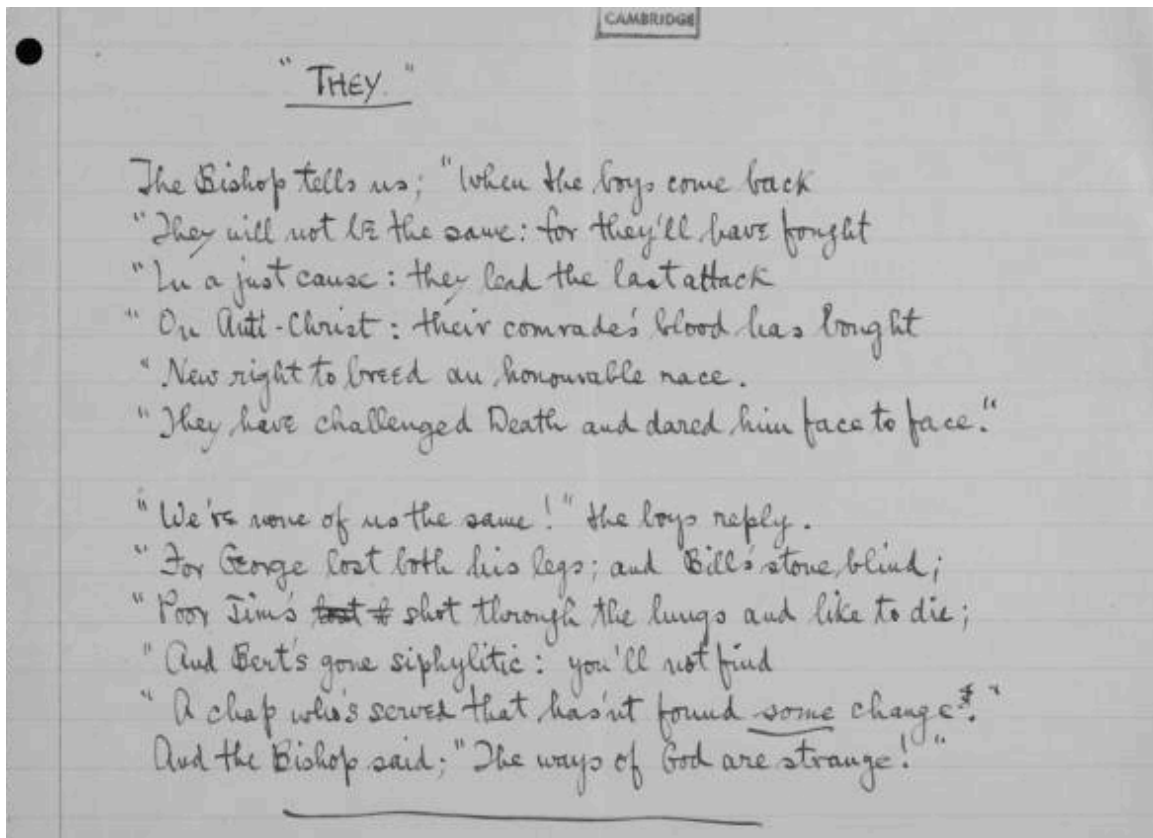 CAMBRIDGE
"THEY."
The Bishop tells us; "When the boys come back
"They will not be the same: for they'll have fought
"In a just cause: they lead the last attack
"On Anti-Christ: their comrade's blood has bought
"New right to breed an honourable race.
"They have challenged Death and dared him face to face."
"We're none of us the same!" the boys reply.
"For George lost both his legs; and Bill's stone blind;
"Poor Jim's shot through the lungs and like to die;
"And Bert's gone siphylitic: you'll not find
"A chap who's served that has'nt found some change."
And the Bishop said; "The ways of God are strange!"